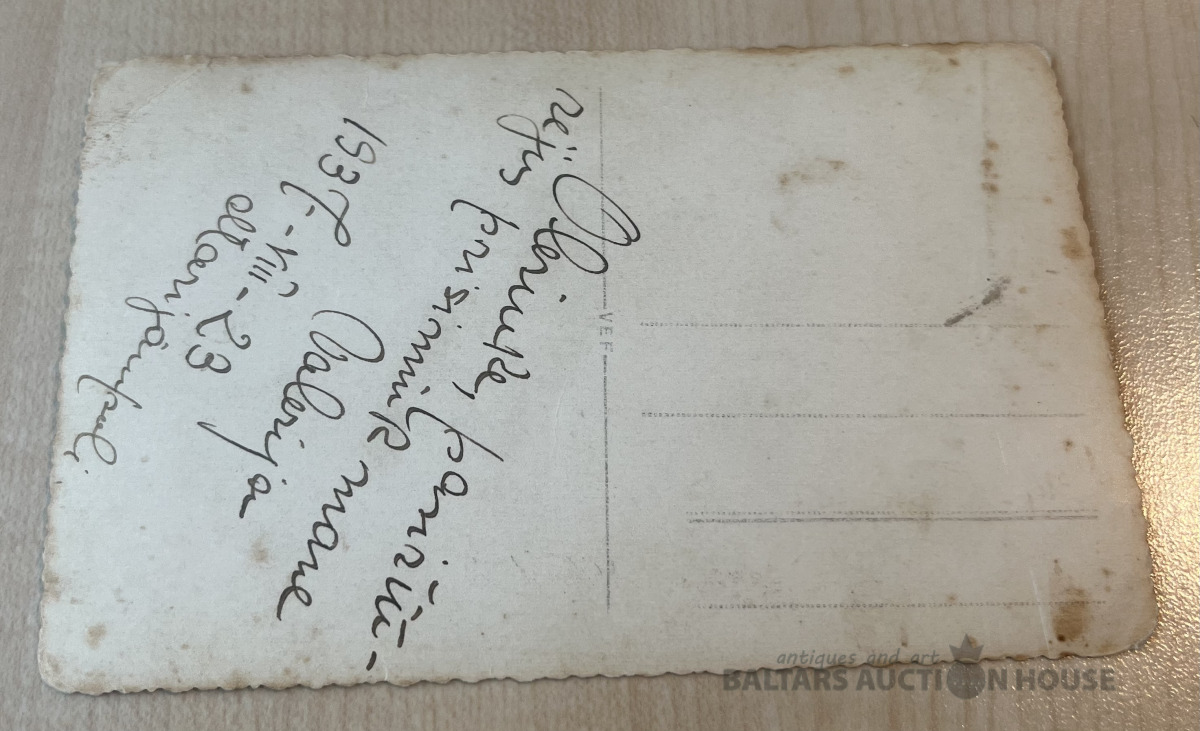 paržiū-
rėjus prisimink mane
Valerija
1937-VIII-23
Marijampolė
VEF
antiques and art
BALTARS AUCTION HOUSE